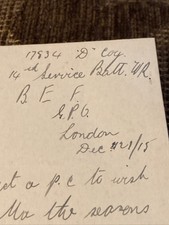 17834 "D" Coy.
14th Service Batt. WR.
B E F
G.P.O.
London
Dec 21/15
st a p.c to wish
the seasons